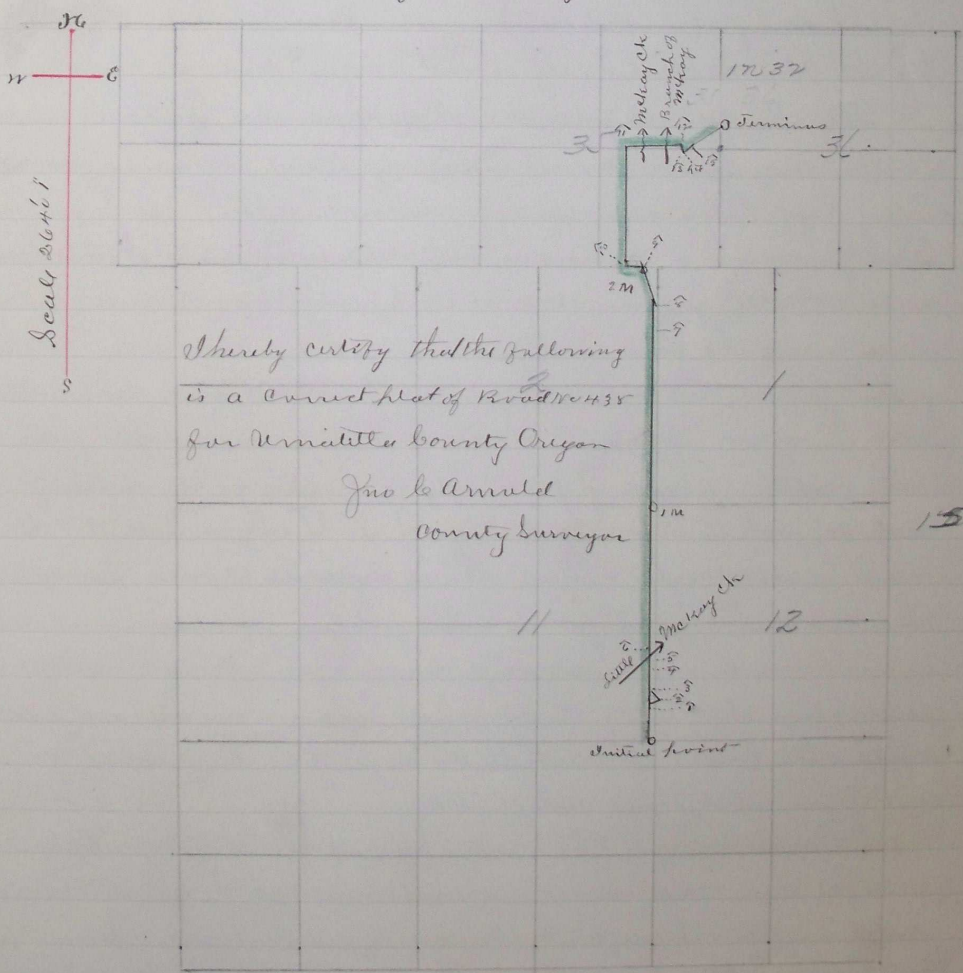 N
W
E
S
Scale 2640'1"
McKay Ck
Branch of
McKay
1N 32
Terminus
2 M
I hereby certify that the following
is a correct plat of Road No 438
for Umatilla County Oregon
Jno C Arnold
County Surveyor
2
1
1 M
11
12
Little McKay Ck
Initial point